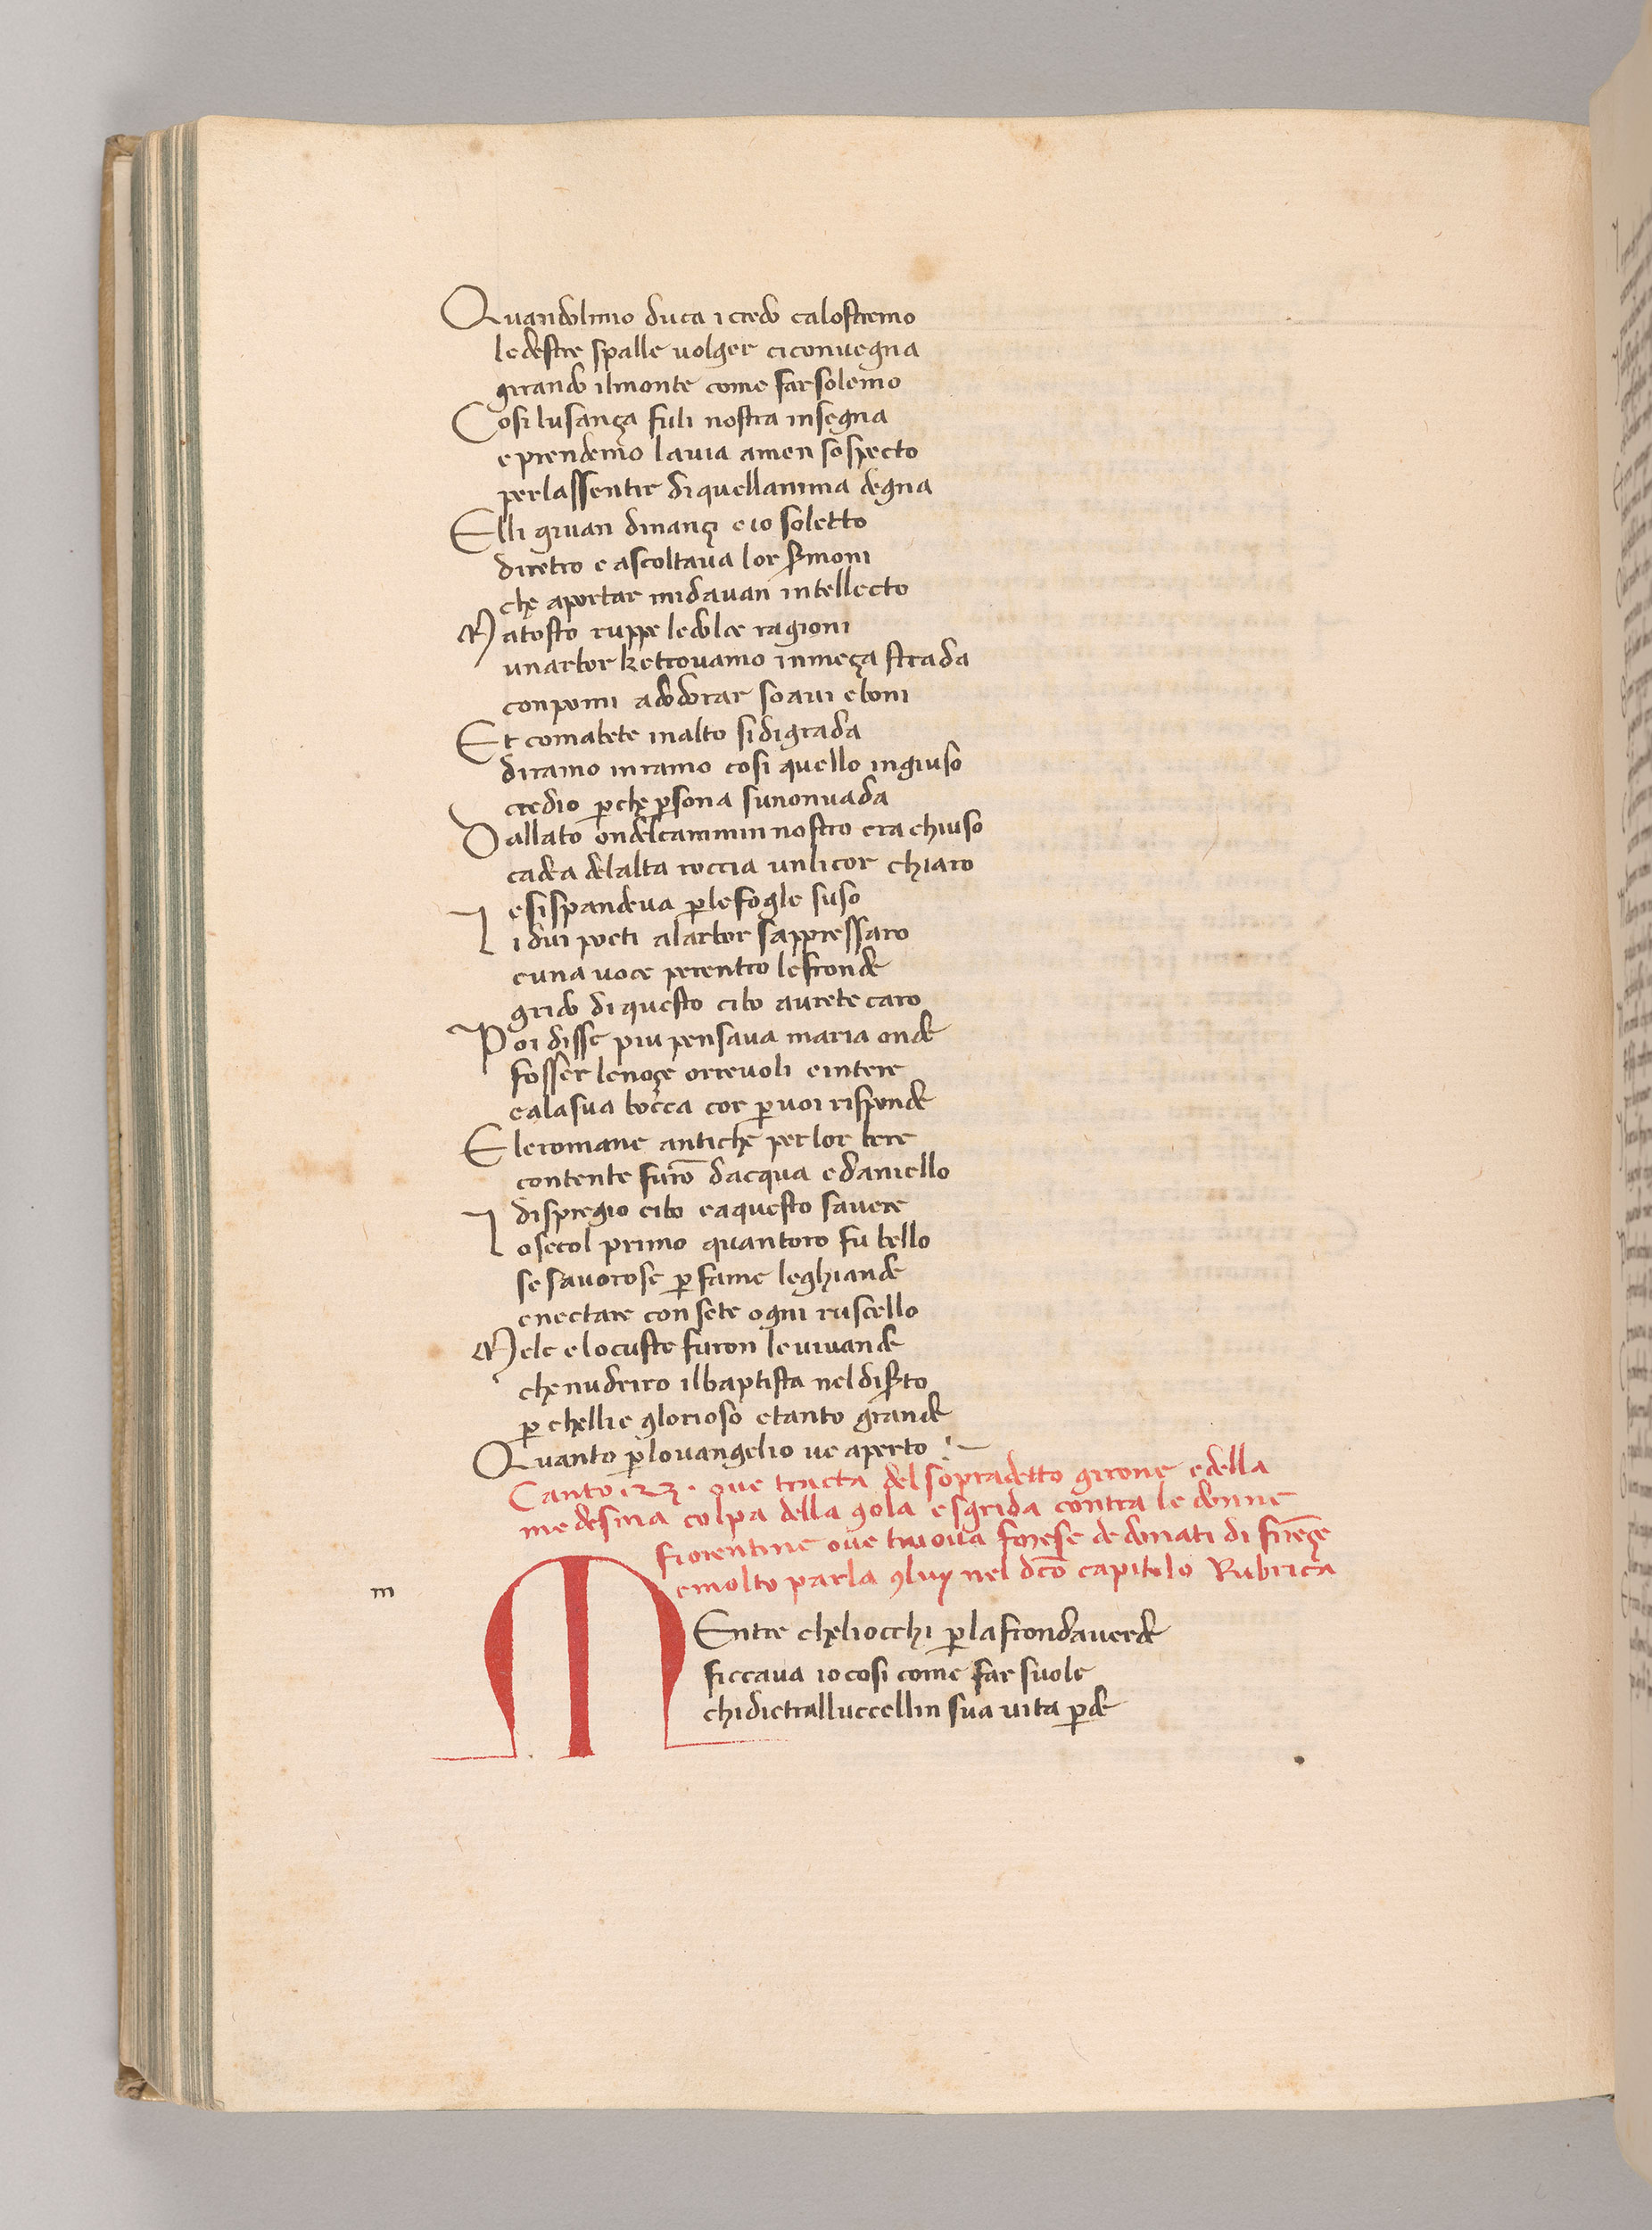 Quandolmio duca i credo calostremo
ledestre spalle uolger ciconuegna
girando ilmonte come farsolemo
Cosi lusança fuli nostra insegna
e prendemo lauia amen sospecto
perlassentir diquellanima degna
Elli giuan dinançi e io soletto
diretro e ascoltaua lor sermoni
che aportar midauan intellecto
Matosto ruppe ledolce ragioni
unarbor ketrouamo inmeça strada
conpomi adodorar soaui eboni
Et comabete inalto sidigrada
diramo inramo cosi quello ingiuso
credio ꝑche ꝑsona sunonuada
Dallato ondelcammin nostro era chiuso
cadea delalta roccia unlicor chiaro
esispandeua ꝑlefogle suso
I i dui poeti alarbor sappressaro
euna uoce perentro lefronde
grido di questo cibo aurete caro
Poi disse piu pensaua maria onde
fosser lenoçe orreuoli eintere
calasua bocca cor ꝑuoi risponde
Eleromane antiche perlor bere
contente furō dacqua edaniello
dispregio cibo eaquesto sauere
Iosecol primo quantoro fu bello
se sauorose ꝑ fame leghiande
enectare con sete ogni ruscello
Mele elocuste furon leuiuande
chenudriro ilbaptista neldiserto
ꝑ chellie glorioso etanto grande
Quanto ꝑlouangelio ue aperto
Canto .23. oue tracta del sopradetto girone edella
medesma colpa della gola esgrida contra le donne
fiorentine oue truoua forese de donati di fireçe
emolto parla ꝯluy nel dc̄o capitolo Rubrica
m
MEntre cheliocchi ꝑlafrondauerde
ficcaua io cosi come far suole
chidietralluccellin sua uita ꝑde